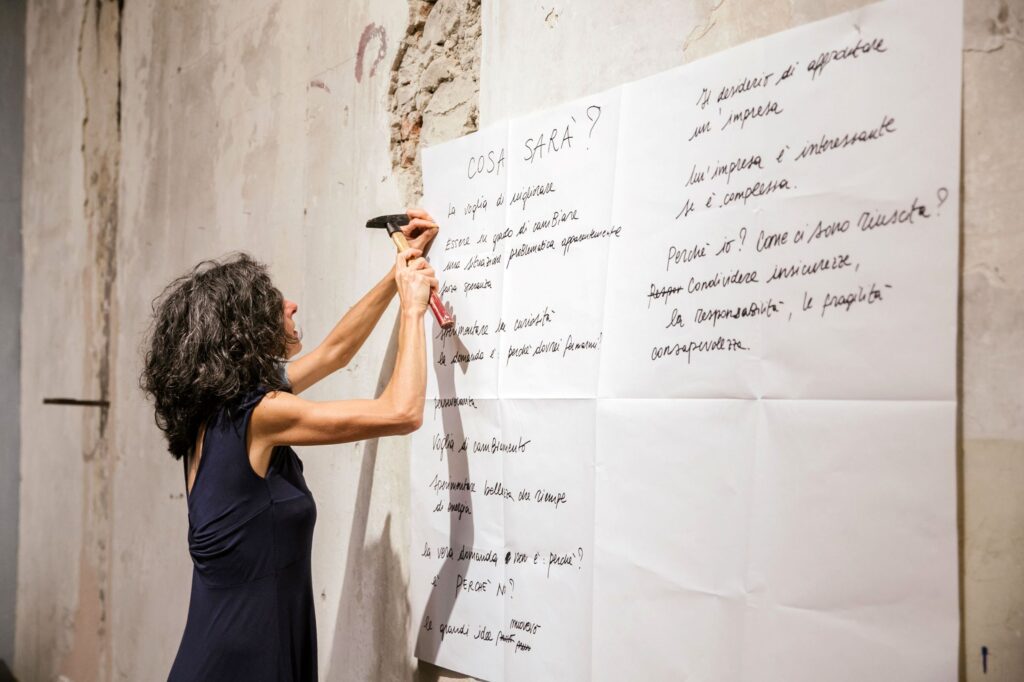 COSA SARÀ?
La voglia di migliorare
Essere in grado di cambiare
una situazione problematica apparentemente
senza speranza
sperimentare la curiosità
la domanda è: perché dovrei fermarmi?
perseveranza
voglia di cambiamento
sperimentare bellezza che riempe
di energia
la vera domanda non è: perché?
è PERCHÉ NO?
le grandi idee muovono
Il desiderio di approntare
un'impresa
Un'impresa è interessante
se è complessa.
Perché io? Come ci sono riuscita?
Condividere insicurezze,
la responsabilità, le fragilità
consapevolezza.